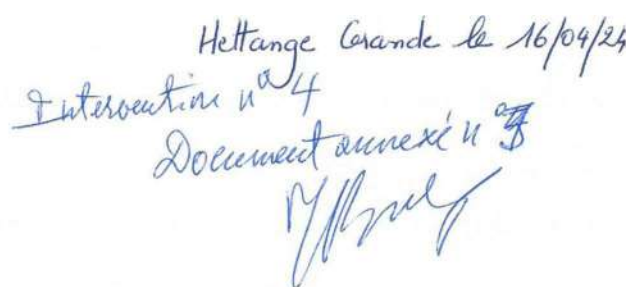 Hettange Grande le 16/04/24
Intervention n° 4
Document annexé n°